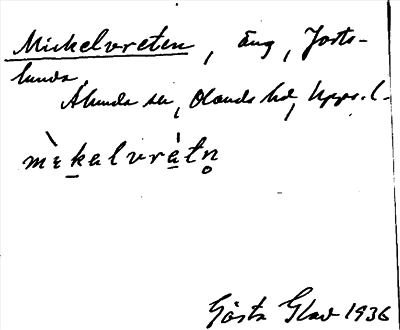 Mickelvreten, äng, Josts-
lunda
Alunda sn, Olands hd, Upps. l.
mɛ̀k̠alvrà̠tn̥
Gösta Glad 1936